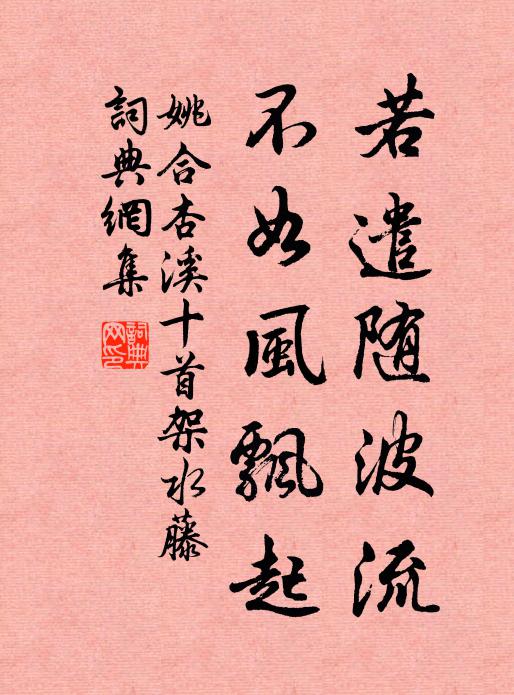 若遣随波流
不如風飄起
姚合杏溪十首架水藤
詞典網集
詞典网印